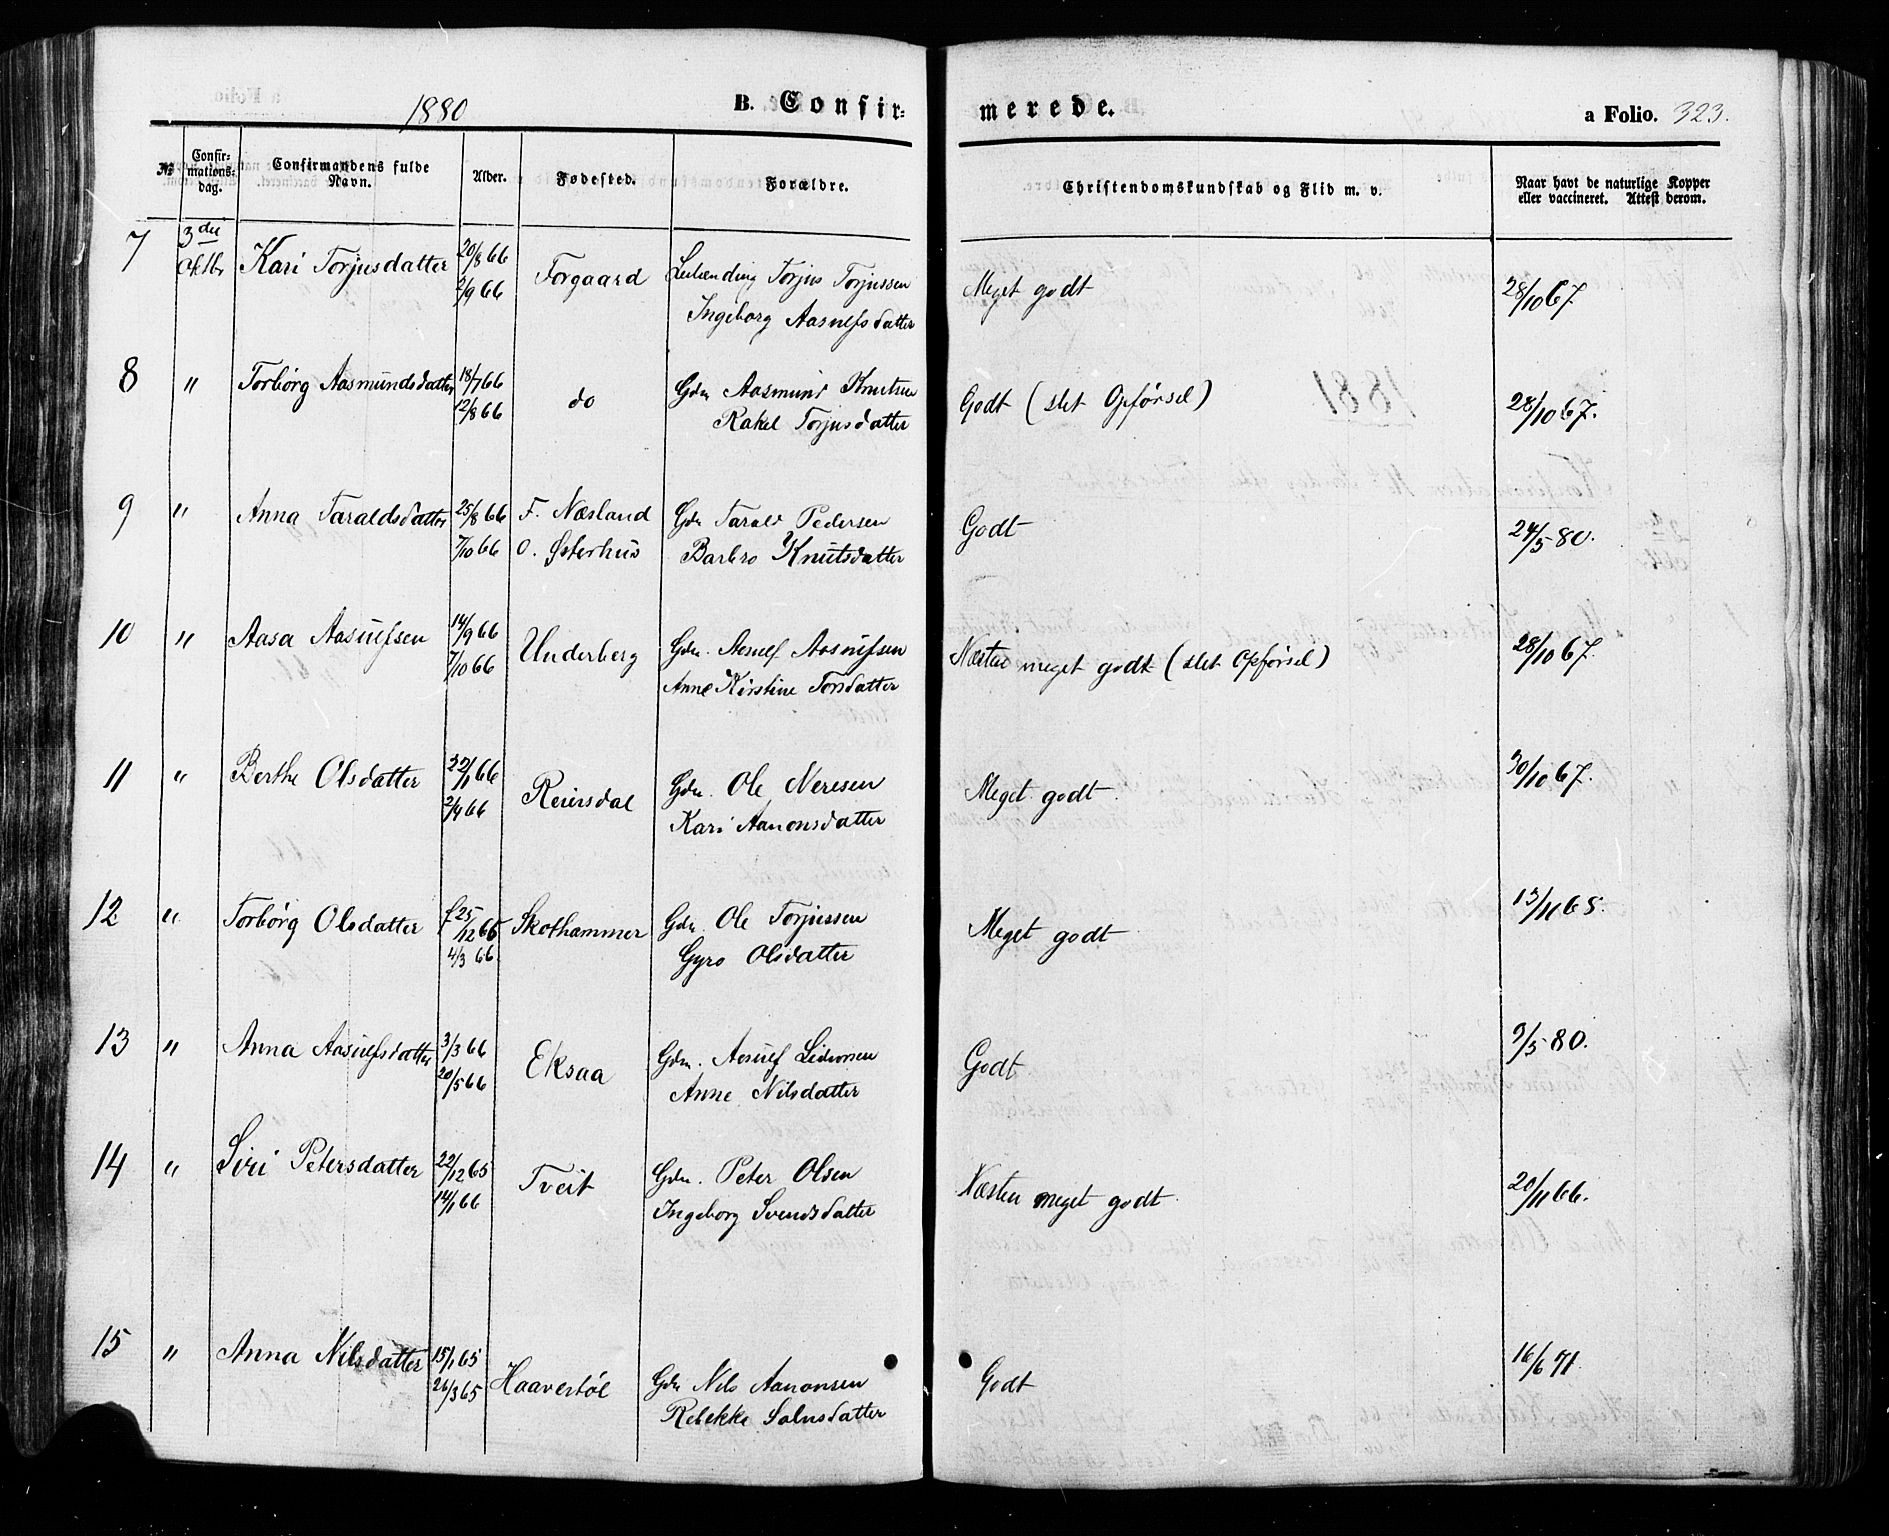 1880
B. Confir-
merede.
a Folio. 323.
№
Confir-
mations-
dag.
Confirmandens fulde
Navn.
Alder.
Fødested.
Forældre.
Christendomskundskab og Flid m. v.
Naar havt de naturlige Kopper
eller vaccineret. Attest derom.
7 3die Oktbr Kari Torjusdatter 20/8 66 Forgaard Torjus Torjussen Meget godt 28/10 67.
2/9 66 Ingeborg Aasulfsdatter
8 " Torbørg Aasmundsdatter 18/7 66 do Gdm Aasmund Knutsen Godt (slet Opførsel) 28/10 67.
12/8 66 Rakel Torjusdatter
9 " Anna Taraldsdatter 25/8 66 F. Næsland Gdm Tarald Pedersen Godt 24/5 80.
7/10 66 O. Østerhus Barbro Knutsdatter
10 " Aasa Aasulfsen 14/9 66 Underberg Gdm. Aasulf Aasulfsen Næsten meget godt (slet Opførsel) 28/10 67.
7/10 66 Anne Kirstine Torsdatter
11 " Berthe Olsdatter 22/1 66 Reiersdal Gdm. Ole Neresen Meget godt. 30/10 67.
2/4 66 Kari Aanonsdatter
12 " Torbørg Olsdatter f 25/12 65 Skothammer Gdm. Ole Torjussen Meget godt 13/11 68.
4/3 66. Gyro Olsdatter
13 " Anna Aasulfsdatter 3/3 66 Eksaa Gdm. Aasulf Godt 9/5 80.
20/5 66 Anne Nilsdatter
14 " Siri Petersdatter 22/12 65 Tveit Gdm. Peter Olsen Næsten meget godt. 20/11 66.
14/1 66 Ingeborg Svendsdatter
15 " Anna Nilsdatter 15/1 65 Haaverstøl Gdm Nils Aanonsen Godt 16/6 71.
26/3 65 Rebekke Salvesdatter